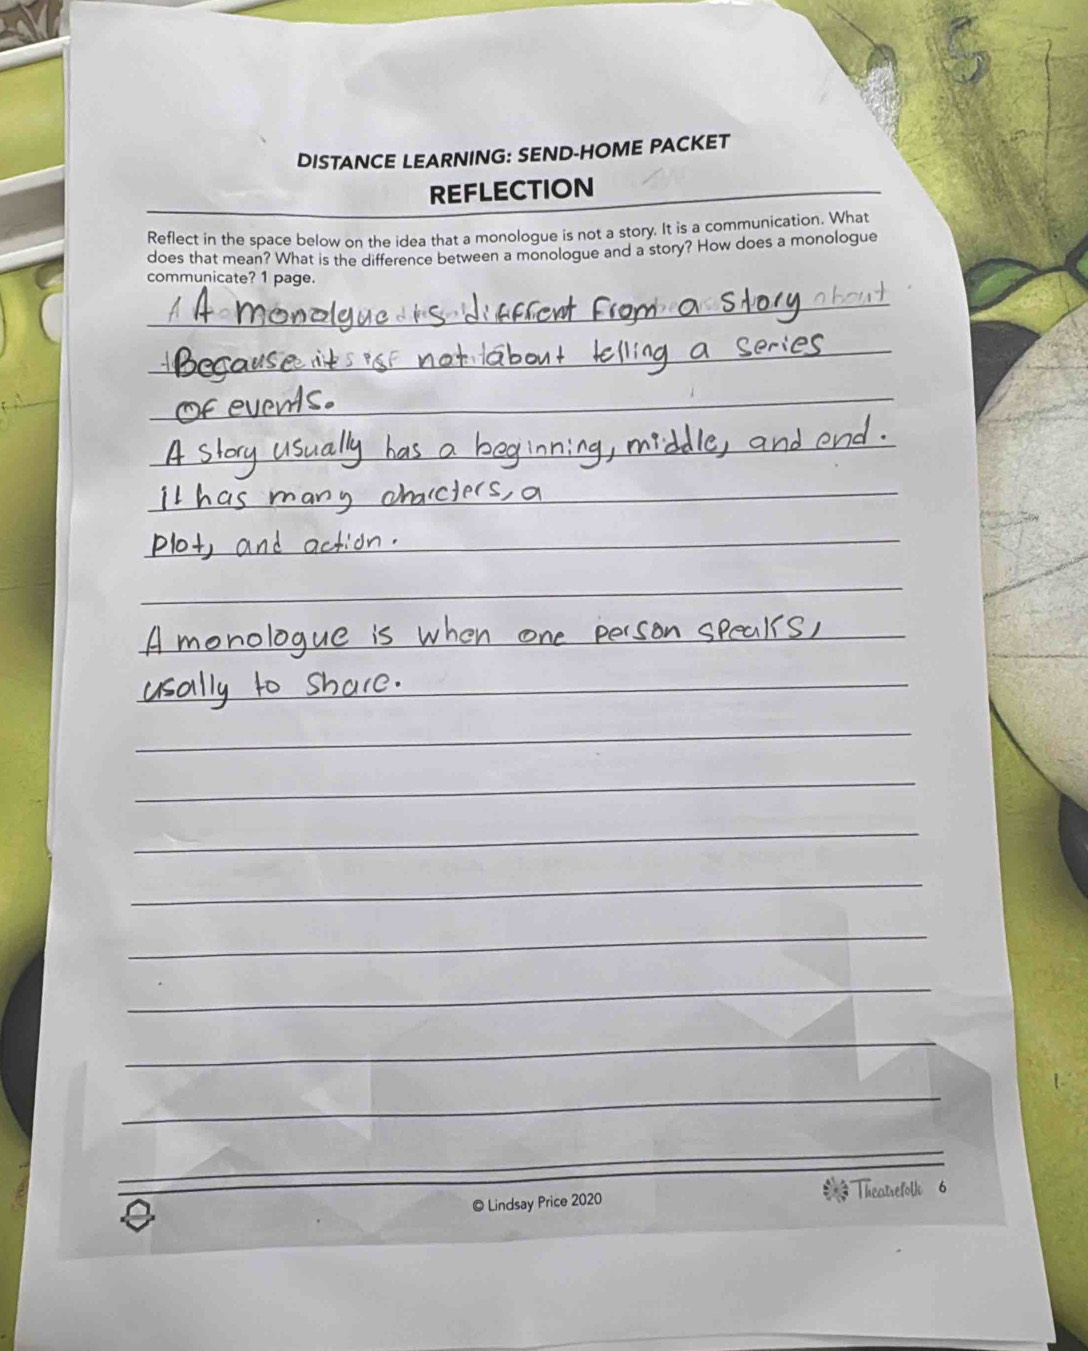 DISTANCE LEARNING: SEND-HOME PACKET
REFLECTION
Reflect in the space below on the idea that a monologue is not a story. It is a communication. What
does that mean? What is the difference between a monologue and a story? How does a monologue
communicate? 1 page.
A monolgue is diffrent From a story about
Because its not about telling a series
OF events.
A story usually has a beginning, middle, and end.
it has many charcters, a
plot, and action.
A monologue is when one person speaks,
usally to share.
© Lindsay Price 2020
Theatrefolk 6